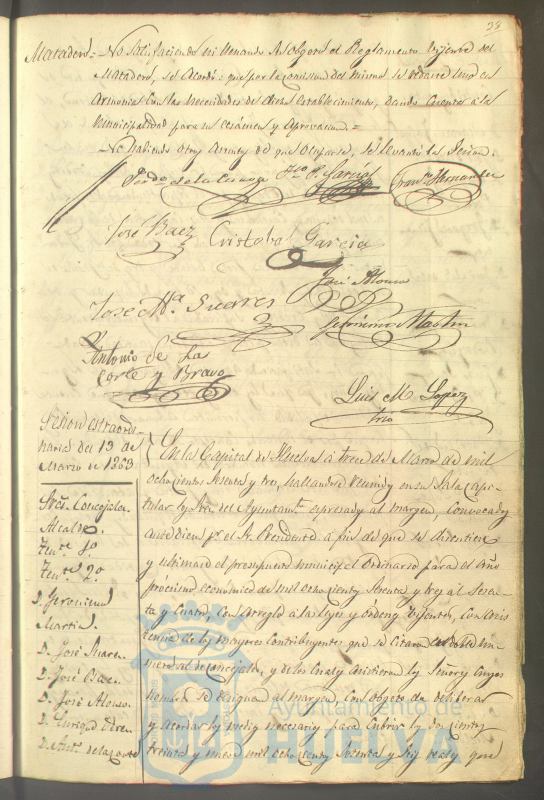 38
Matadero = No satisfaciendo ni llenando su objeto el Reglamento vijente del
Matadero, se acordó: que por la comision del mismo se redacte uno en
armonia con las necesidades de dicho establecimiento, dando cuenta á la
Municipalidad para su exámen y aprovacion.=
No habiendo otros asuntos de que ocuparse, se levantó la sesion.
Pedro de la Cueva Franco Hernandez
José Baez Cristobal Garcia
José Alonso
José Ma Suares
Gerónimo Martin
Antonio de La
Corte y Bravo
Luis M. Lopez
srio
Señon estraordi-
naria del 13 de
Marzo de 1863
Sres. Concejales
Alcalde.
Tente 1º
Tente 2º
D. Geronimo
Martin.
D. José Suares
D. José Baez
D. José Alonso.
D. Enrique
D. Anto. de la Corte
En la Capital de Huelva á trece de Marzo de mil
ochocientos sesenta y tres, hallandose reunidos en su Sala capi-
tular los Sres. del Ayuntamto. espresados al margen, convocados
ante diem pr. el Sr. Presidente á fin de que se discutiera
y ultimara el presupuesto municipal ordinario para el año
próximo económico de mil ochocientos sesenta y tres al sesen-
ta y cuatro, con arreglo á las leyes y ordenes vijentes, con asis-
tencia de los mayores contribuyentes que se citaron en doble nu-
mero al de concejales, y de los cuales asistieron los Señores cuyos
nombres se designan al margen, con objeto de deliberar
y acordar los medios necesarios para cubrir los doscientos
treinta y nueve mil ochocientos sesenta y seis reales que
Ayuntamiento de
HUELVA